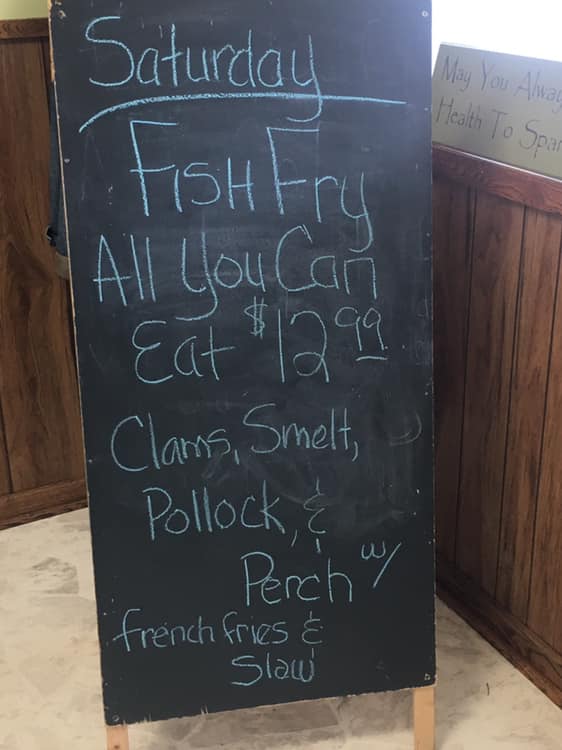 Saturday
Fish Fry
All You Can
Eat $12.99
Clams, Smelt,
Pollock, &
Perch w/
french fries &
slaw
May You Alway
Health To Spar